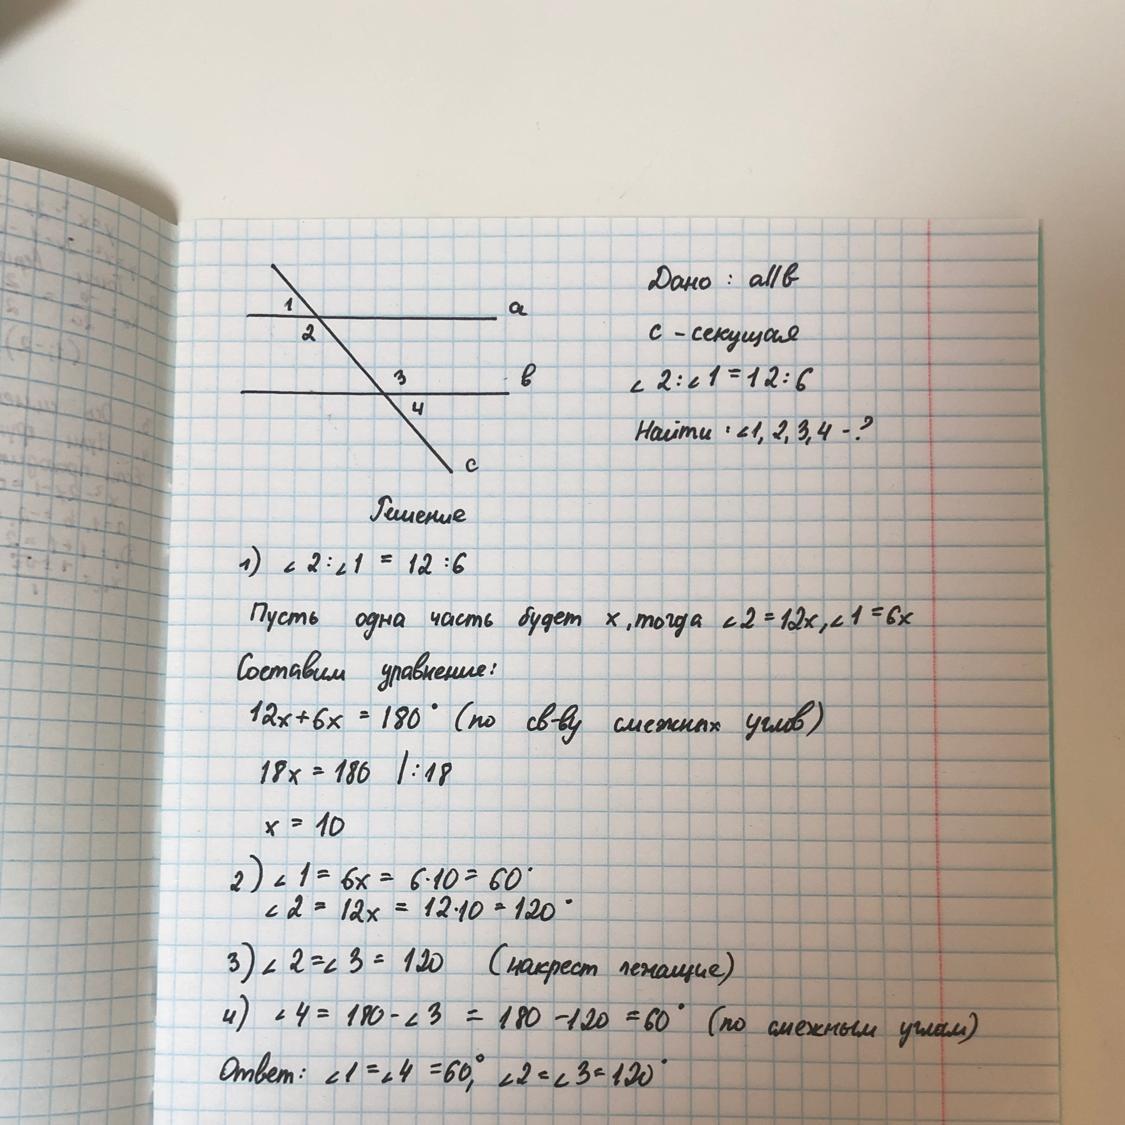 1
2
a
3
в
4
c
Дано : a||в
c - секущая
∠2:∠1=12:6
Найти : ∠1, 2, 3, 4 - ?
Решение
1) ∠2:∠1 = 12:6
Пусть одна часть будет x, тогда ∠2=12x, ∠1=6x
Составим уравнение:
12x+6x = 180° (по св-ву смежных углов)
18x = 180 |:18
x = 10
2) ∠1 = 6x = 6·10 = 60°
∠2 = 12x = 12·10 = 120°
3) ∠2=∠3 = 120 (накрест лежащие)
4) ∠4 = 180-∠3 = 180-120 = 60° (по смежным углам)
Ответ: ∠1=∠4 =60°, ∠2=∠3=120°